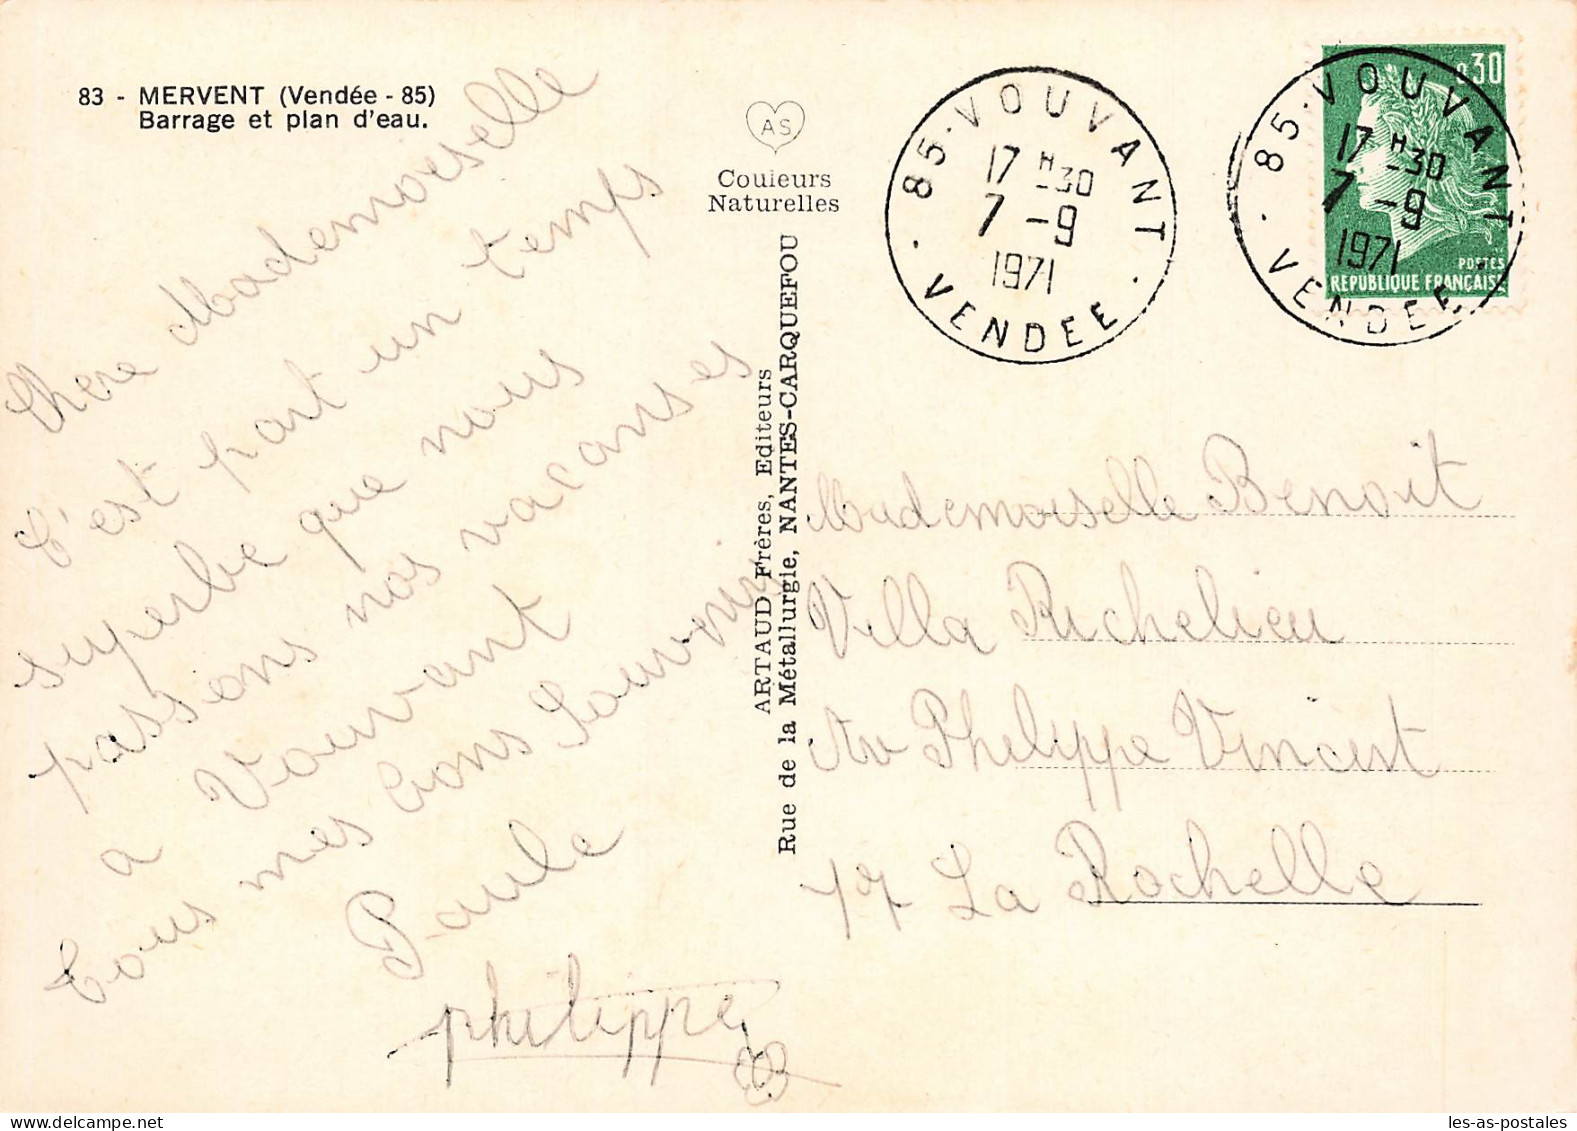 83 - MERVENT (Vendée - 85)
Barrage et plan d'eau.
AS
Couleurs
Naturelles
ARTAUD Frères, Editeurs
Rue de la Métallurgie, NANTES-CARQUEFOU
85 · VOUVANT · VENDEE ·
17 H -30
7 - 9
1971
85 · VOUVANT · VENDEE ·
17 H -30
7 - 9
1971
0.30
POSTES
REPUBLIQUE FRANÇAISE
Chere Mademoiselle
C'est part un temps
superbe que nous
passons nos vacanses
a Vouvant
tous mes bons Souvenirs
Paule
philippe
Mademoiselle Benoit
Villa Richelieu
Av Philippe Vincent
17 La Rochelle
les-as-postales
www.delcampe.net